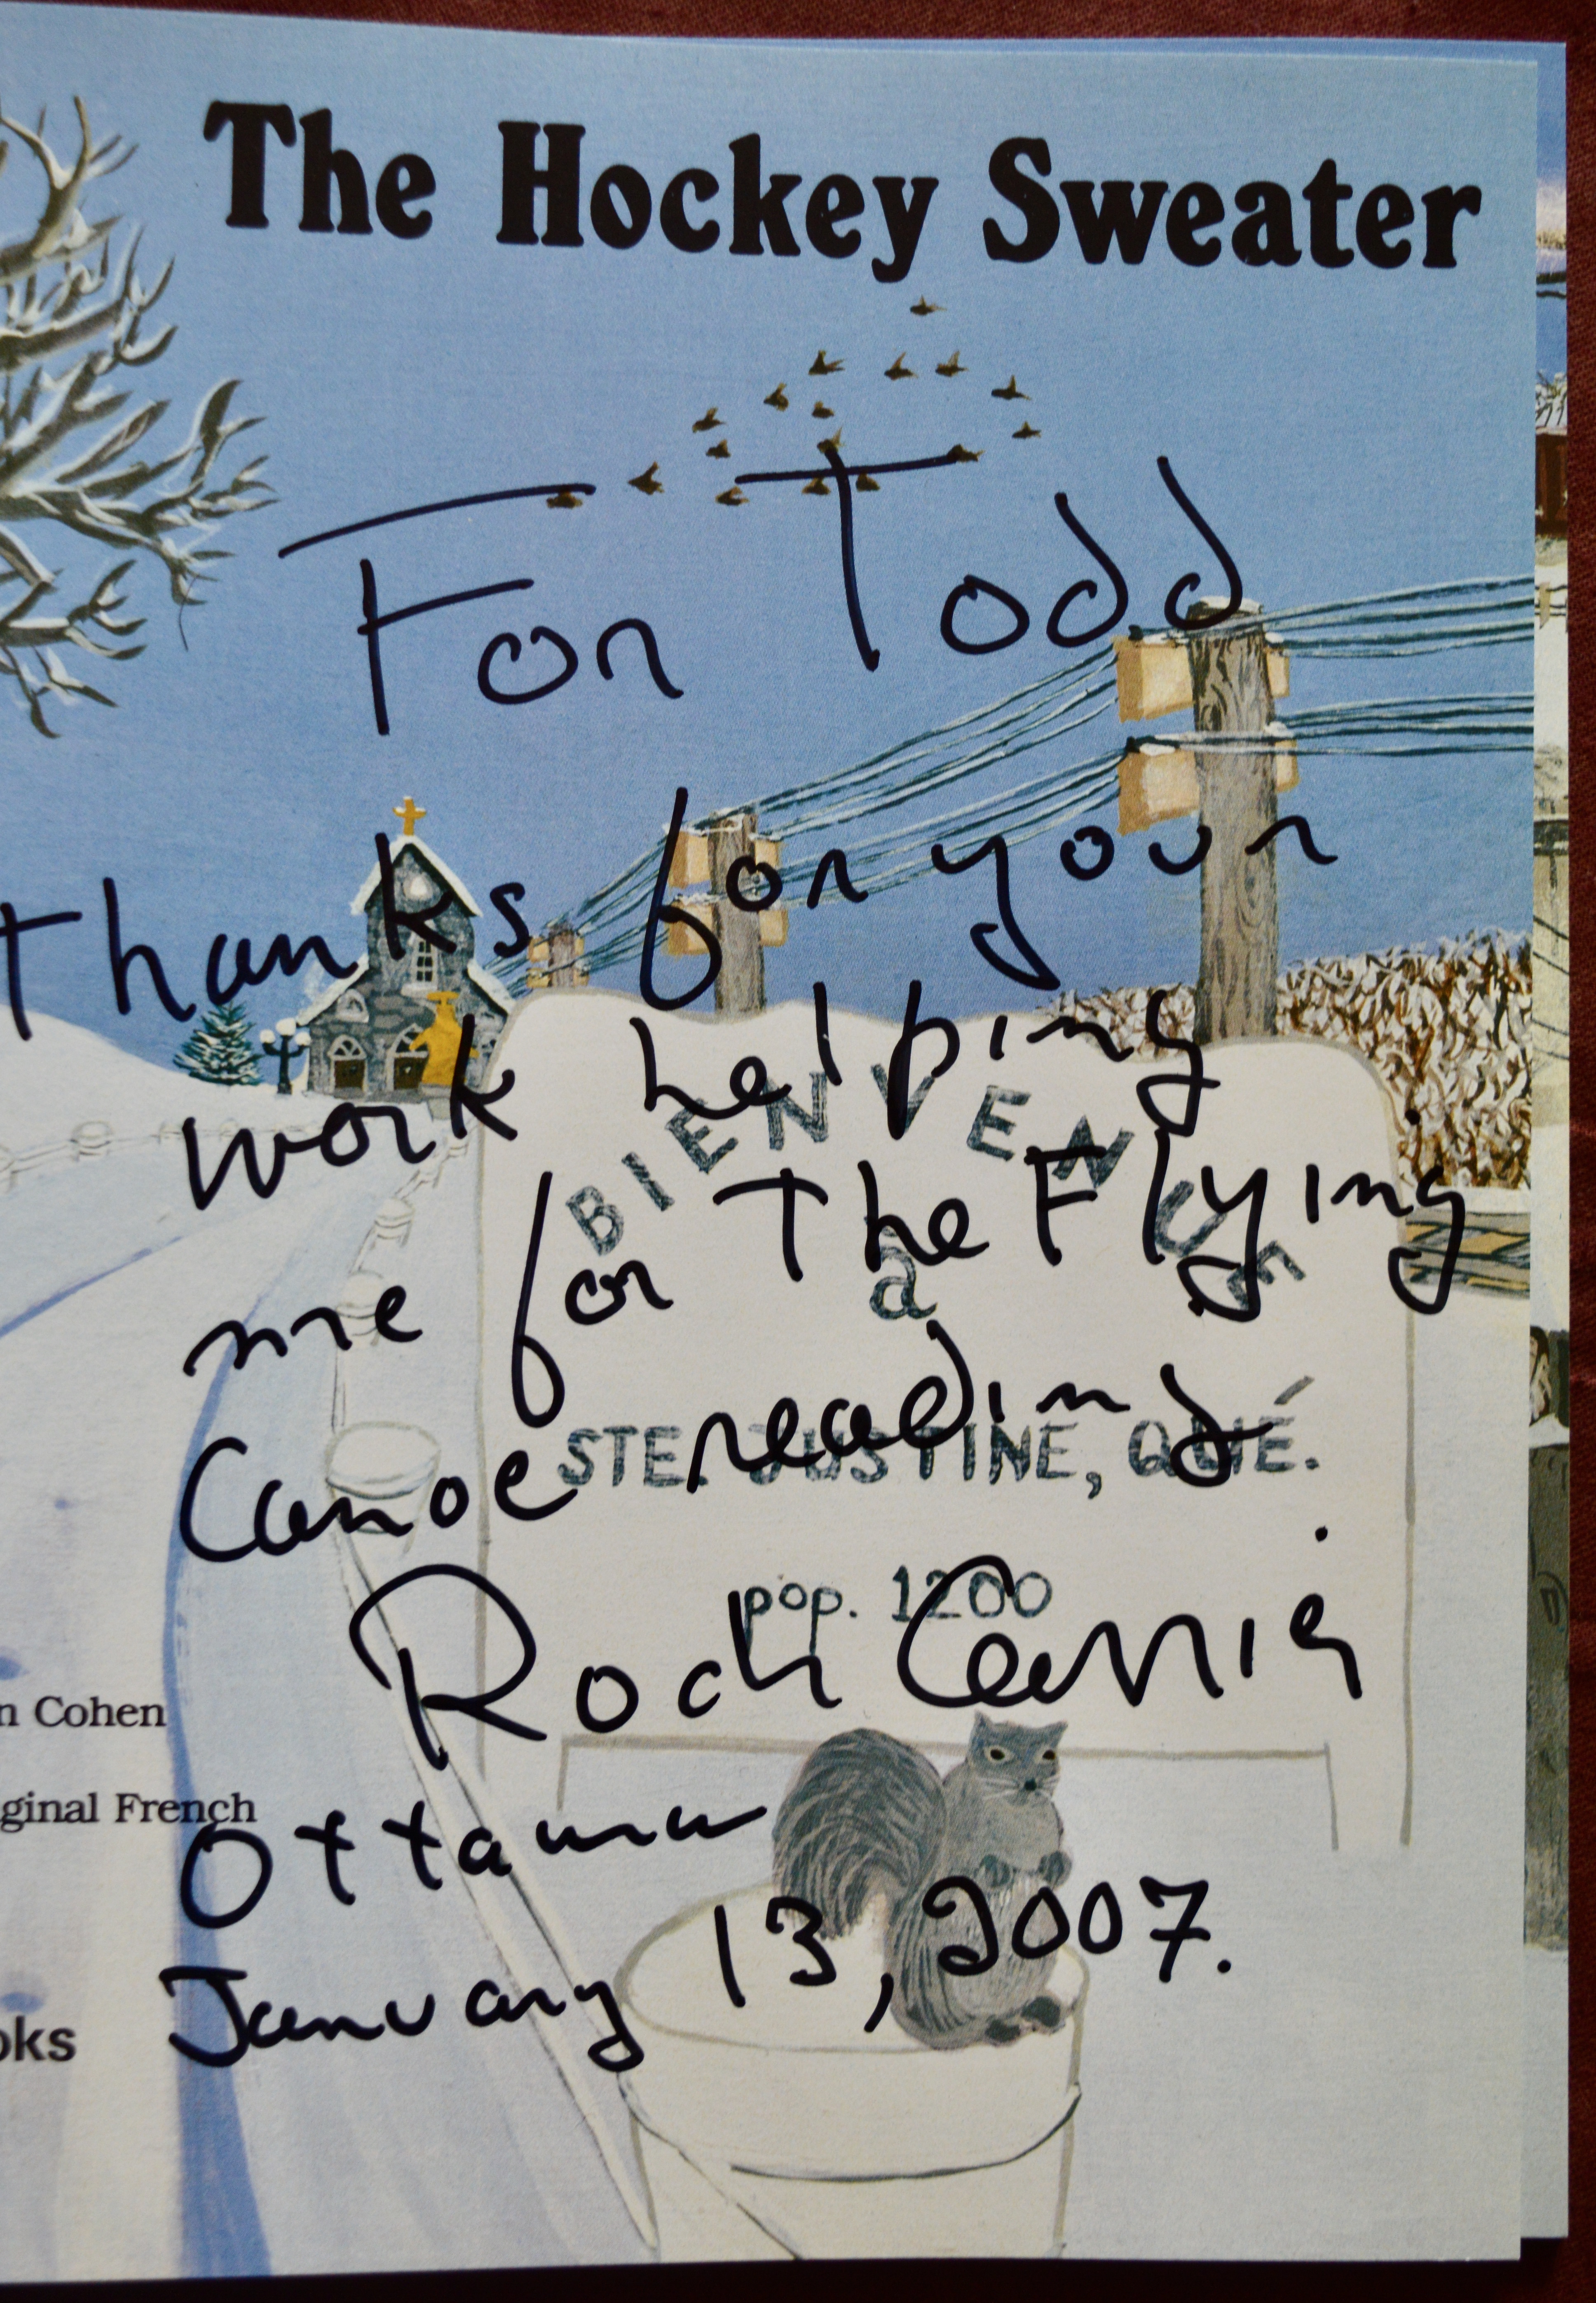 The Hockey Sweater
For Todd
Thanks for your
work helping
me for The Flying
Canoe reading.
Roch Carrier
Ottawa
January 13, 2007.
BIENVENUE
à
STE. JUSTINE, QUÉ.
pop. 1200
n Cohen
ginal French
oks